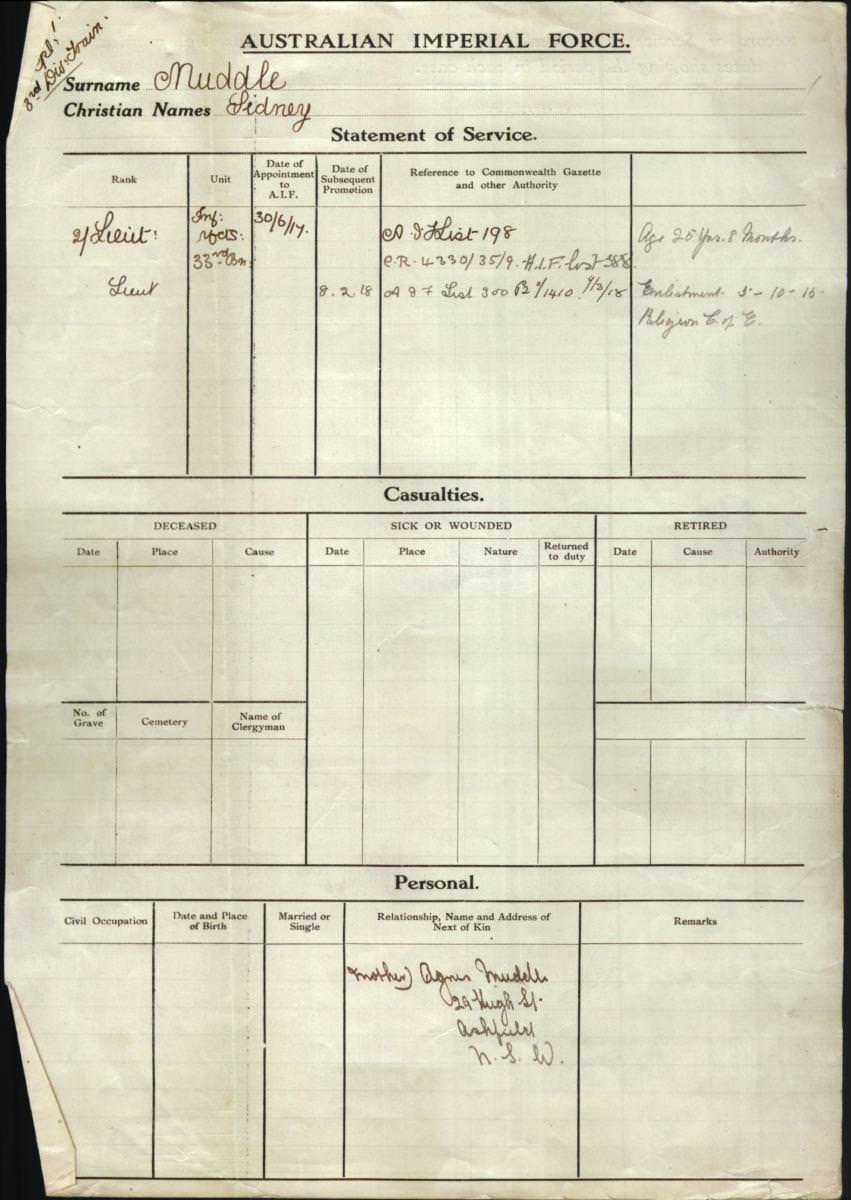 3rd Div: Train.
AUSTRALIAN IMPERIAL FORCE.
Surname Muddle
Christian Names Sidney
Statement of Service.
Rank
Unit
Date of Appointment to A.I.F.
Date of Subsequent Promotion
Reference to Commonwealth Gazette and other Authority
2/Lieut:
Inf:
33rd Bn.
30/6/17.
A.I.F List 198
C.R. 4330/35/9. A.I.F. List
Age 25 Yrs. 8 Months.
Lieut
8.2.18
A I F List 300
Enlistment 5-10-15
Religion C. of E.
Casualties.
DECEASED
SICK OR WOUNDED
RETIRED
Date
Place
Cause
Date
Place
Nature
Returned to duty
Date
Cause
Authority
No. of Grave
Cemetery
Name of Clergyman
Personal.
Civil Occupation
Date and Place of Birth
Married or Single
Relationship, Name and Address of Next of Kin
Remarks
(mother) Agnes Muddle
29 Hugh St.
Ashfield
N. S. W.